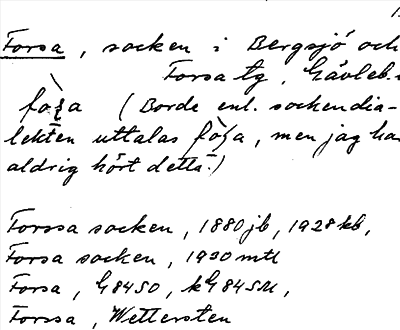 Forsa, socken i Bergsjö och
Forsa tg, Gävleb.
(Borde enl. sockendia-
lekten uttalas, men jag ha
aldrig hört detta.)
Forssa socken, 1880 jb, 1928 kb,
Forsa socken, 1930 mtl
Forsa, G8450, kG845M,
Forssa, Wettersten